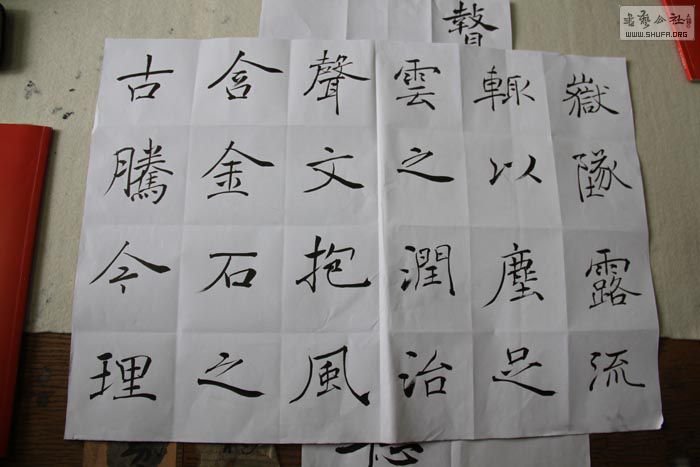 古騰今理
含金石之
聲文抱風
雲之潤治
輒以塵足
嶽墜露流
書藝公社
WWW.SHUFA.ORG